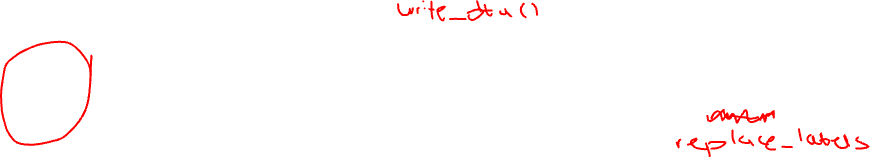 write_dta()
replace_labels